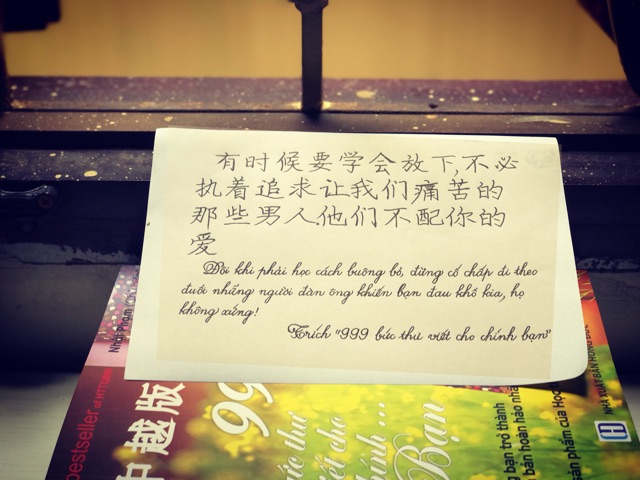 有时候要学会放下,不必
执着追求让我们痛苦的
那些男人.他们不配你的
爱
Đôi khi phải học cách buông bỏ, đừng cố chấp đi theo
đuổi những người đàn ông khiến bạn đau khổ kia, họ
không xứng!
Trích "999 bức thư viết cho chính bạn"
Nhật Phạm
bestseller of HITTORI
中越版
99
ức thư
ết cho
hính ...
Bạn
ng bạn trở thành
n bản hoàn hảo nhấ
sản phẩm của Học
NHÀ XUẤT BẢN HỒNG ĐỨC